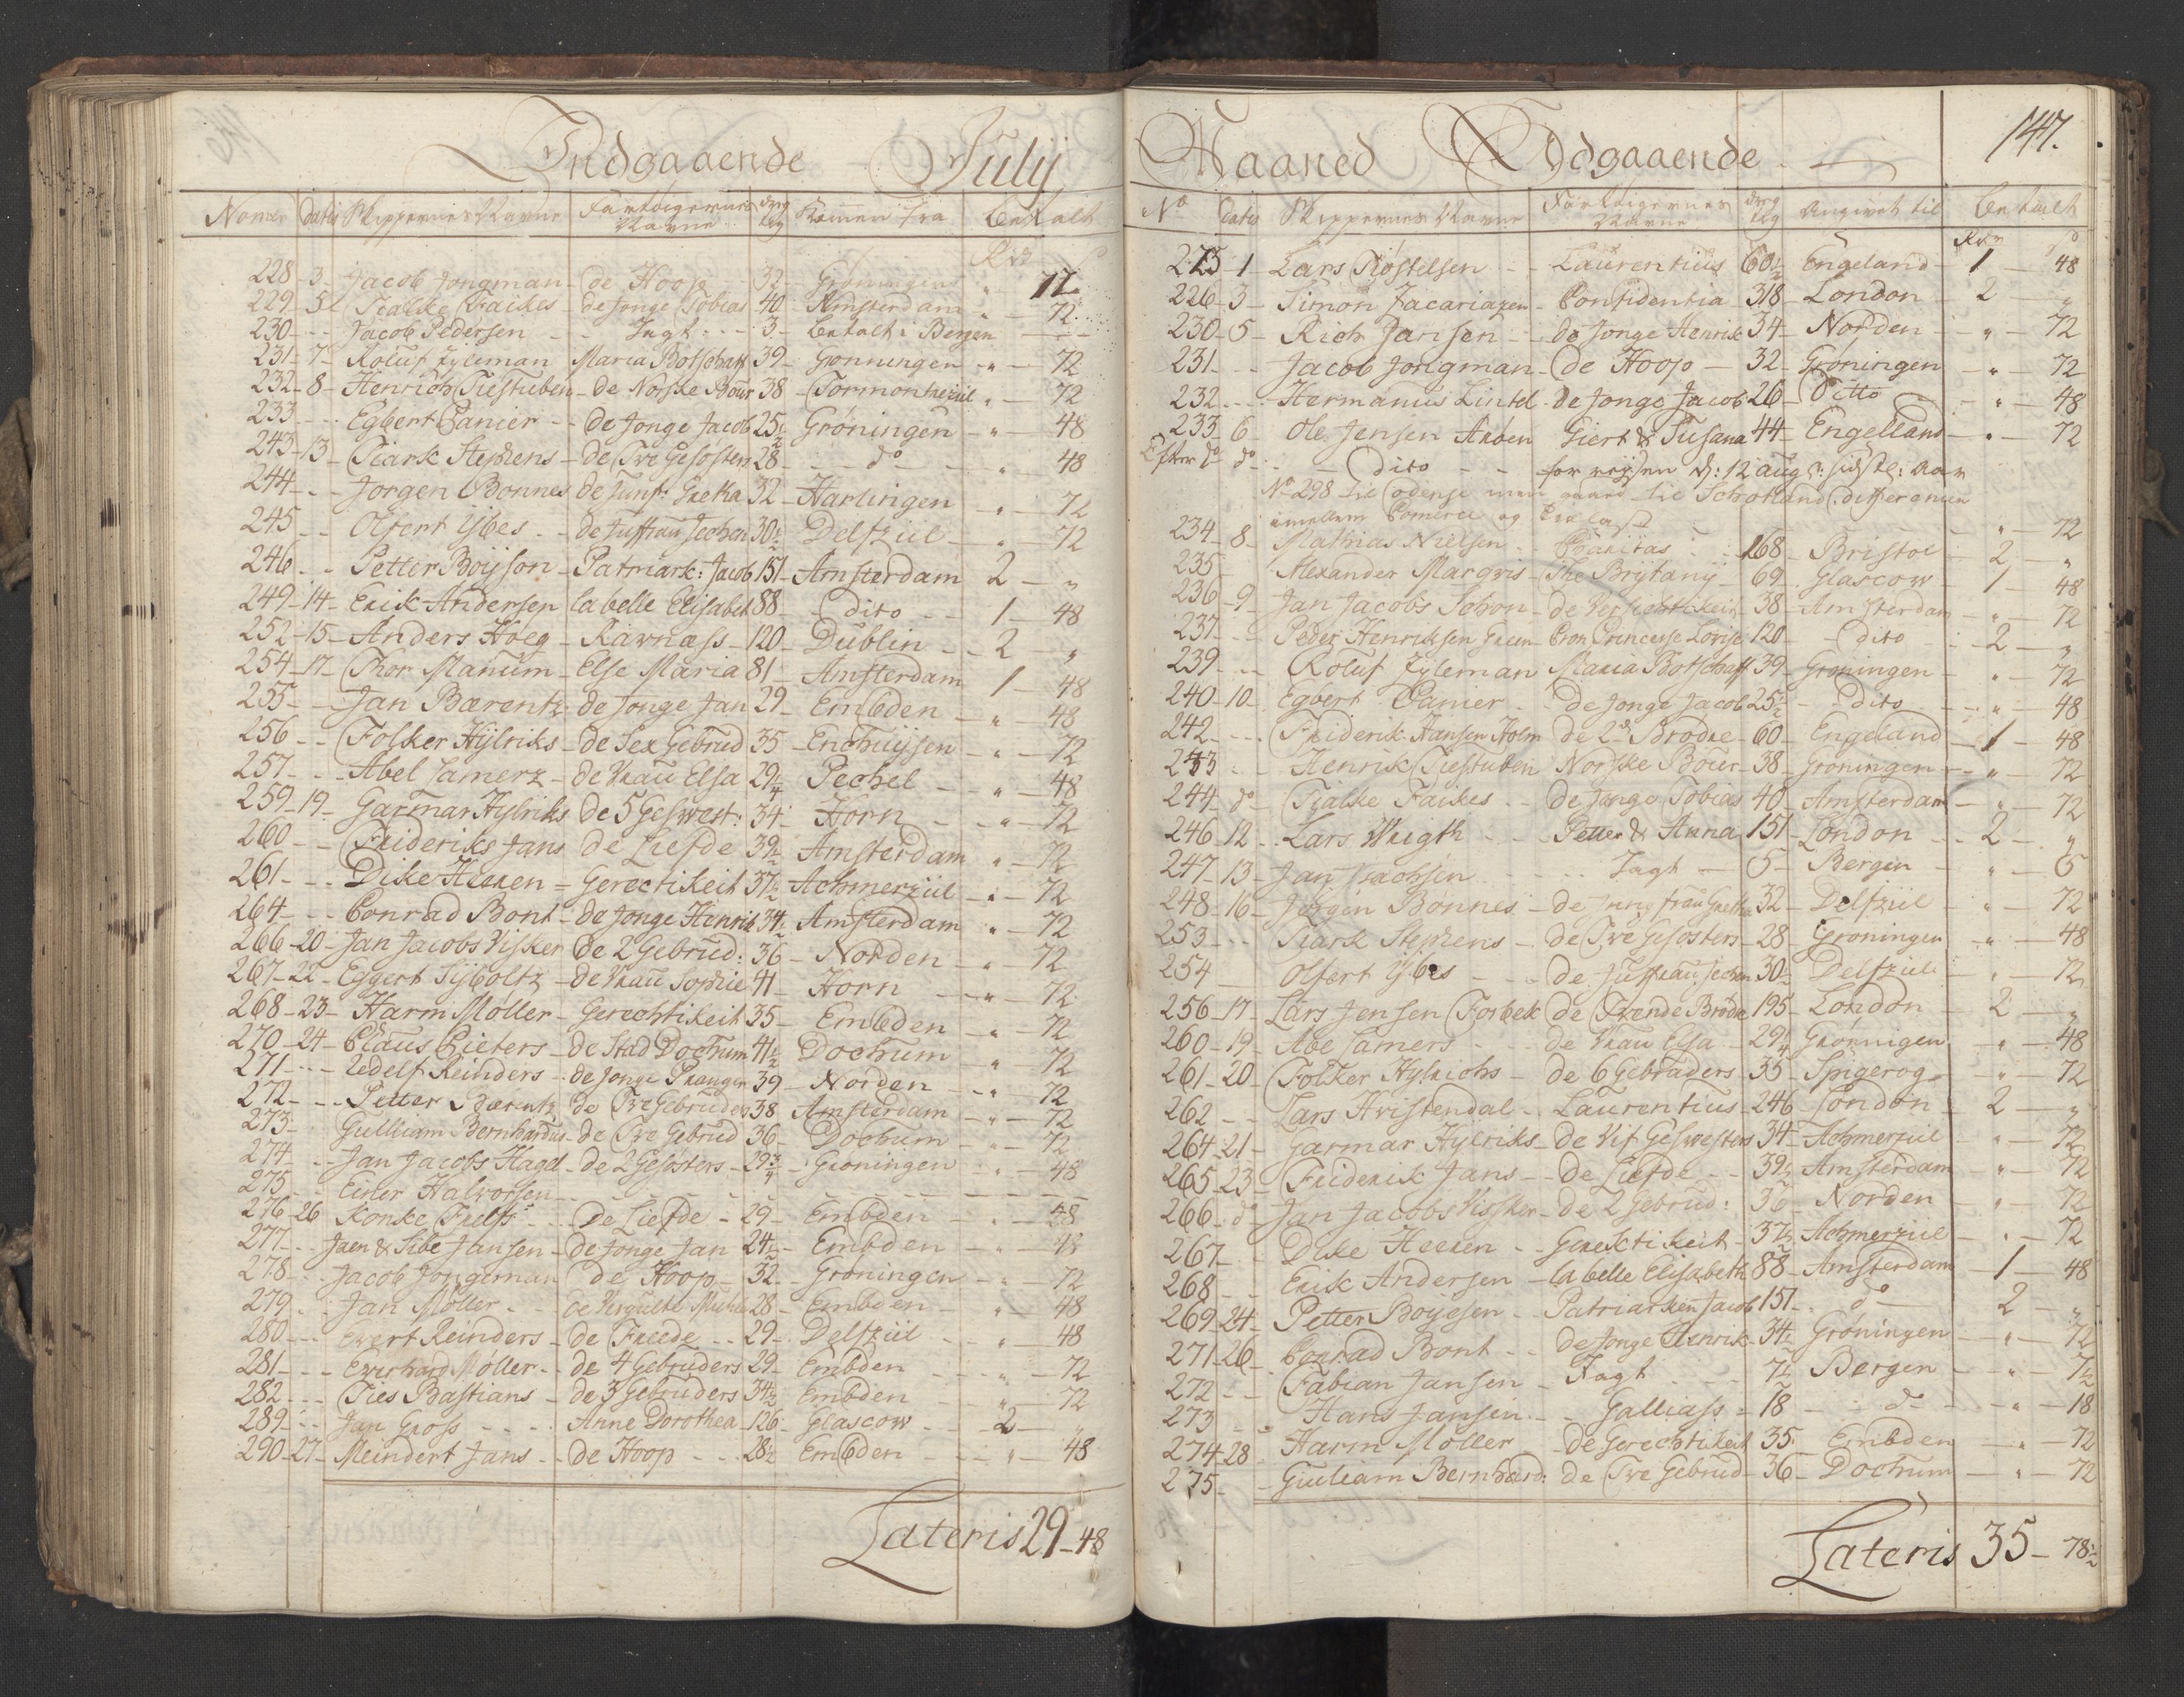 Indgaaende July
Nomer Datis Skippernes Navne Fartøigernes Navne Dræg lig Kommen fra betalt
Rdr ß
228 - 3 - Jacob Jongman - de Hoop 32 - Groningen " 72
229 - 5 - Tialke Faikes - de Jonge Tobias 40 - Amsterdam " - 72
230 - - Jacob Pedersen - - Jagt - - 3 - betalt i Bergen - - -
231 - 7 - Roluf Zyleman Maria Botschaff 39 - Gonningen - " - 72
232 - 8 - Henrich Tiestuben - de Norske Bour 38 - Tormonterziil " - 72
233 - - Egbert Panier - - de Jonge Jacob 25½ Grøningen - " - 48
243 - 13 - Tiark Stephens - de Tve Gesøsters 28 - - do - - " - 48
244 - - Jorgen Bonnes de Junf: Gretha 32 - Harlingen - " - 72
245 - - Olfert Ybes - - de Juffrau Jechen 30½ Delfziil - " - 72
246 - - Petter Boyson - Patriark: Jacob 151 - Amsterdam 2 - "
249 - 14 - Erik Andersen la belle Elisabet 88 - dito - - 1 - 48
252 - 15 - Anders Hoeg - Ravnæss - 120 - Dublin - - 2 "
254 - 17 - Thor Manum - Else Maria 81 - Amsterdam 1 - 48
255 - - Jan Bærentz - de Jonge Jan 29 - Embden - " - 48
256 - - Folker Hylriks - de Sex Gebrud 35 - Enchuysen - " - 72
257 - - Abel Lamerz - de Vrau Elsa 29¼ Pechel - - " - 48
259 - 19 - Garmar Hylriks de 5 Geswest: 34 - Horn - - " - 72
260 - - Frideriks Jans de Liefde 39½ Amsterdam " - 72
261 - - Dike Heeren = Gerectikeit 37½ Achmerziil - " - 72
264 - - Conrad Bont - de Jonge Henrik 34½ Amsterdam " - 72
266 - 20 - Jan Jacobs Visker de 2 Gebrud: 36 - Norden - " - 72
267 - 22 - Eggert Sijboltz - de Vrau Sophie 41 - Horn - " - 72
268 - 23 - Harm Møller - Gerechtikeit 35 - Embden - " - 72
270 - 24 - Claus Pieters - de Stad Dochum 41½ Dochum " - 72
271 - - Udelf Reinders - de Jonge Pranger 39 - Norden - " 72
272 - - Petter Bærentz de Tve Gebruders 38 Amsterdam - " - 72
273 - Gulliam Bernhardus - de Tve Gebrud 36 - Dochum - " - 72
274 - - Jan Jacobs Hagel - de 2 Gesøsters - 29¾ - Groningen - " - 48
275 - - Einer Halvorsen - - - - - -
276 - 26 Konke Frelfs - - De Liefde - 29 - Embden - " - 48
277 - - Jaen & Sibe Jansen - de Jonge Jan 24½ - Embden - " - 48
278 - - Jacob Jongeman de Hoop - 32 - Grøningen - " - 72
279 - - Jan Møller - - de Vergulte 28 - Embden - " - 48
280 - - Evert Reinders - de Freede - - 29 - Delfziil - - " - 48
281 - - Everhard Møller - - de 4 Gebruders 29 - Embden - - " - 72
282 - - Ties Bastians - de 3 Gebruders 34½ Embden - - " - 72
289 - - Jan Gross - - - Anne Dorothea - 126 - Glascow - - 2 - "
290 - 27 - Meindert Jans - - de Hoop - - - 28½ Embden - - " - 48
Lateris 29 - 48
Maaned Udgaaende 147.
No Datis Skippernes Navne Fartøigernes Navne Dræg lig Angivet til betalt
Rdr ß
225 - 1 - Lars Kiøstelsen - - Laurentius 60½ Engeland - 1 - 48
226 - 3 - Simon Zacariazen - Confidentia 318 - London - 2 - "
230 - 5 - Rich Jansen - - de Jonge Henrik 34 - Norden - " - 72
231 - - Jacob Jongman - de Hoop - 32 - Grøningen - " - 72
232 - - Hermanus Lintel - de Jonge Jacob 26 - Ditto - " - 48
233 - 6 - Ole Jensen Aroen Giert & Susana 44 - Engelland - " - 72
Efter do do - - Dito - - for reysen d: 12 aug sidstl: Aar
No 298 til Odense men gaaed til Schotland differansen
imellem Comerce og Læst - " - 72
234 - 8 - Mathias Nielsen - Caritas - - 168 - Bristol - 2 - "
235 Alexander Marqvis - The Brytany - 69 - Glascow - 1 - 48
236 - 9 - Jan Jacobs Schon - de Vorsichtikeit - 38 - Amsterdam - " - 72
237 - - Peder Henriksen Green Cron Princesse Lovise 120 - - dito - - 2 - "
239 - - Roluf Zyleman Maria Botschaff 39 - Groningen - " - 72
240 - 10 - Egbert Panier - - de Jonge Jacob 25½ - dito - - " - 48
242 - - Friderik Hansen Holm de 2de Brødre - 60 - Engeland - 1 - 48
243 - - Henrik Tiestuben Norske Bouer - 38 - Grøningen - " - 72
244 - do - Tialke Faikes - - De Jonge Tobias 40 - Amsterdam - " - 72
246 - 12 - Lars Wrigth - - Petter & Anna 151 - London - 2 - "
247 - 13 - Jan Isachsen - - - Jagt - 5 - Bergen - " - 5
248 - 16 - Jørgen Bonnes - de Jung frau Gretha 32 - Delfziil - " - 72
253 - - Tiark Stephens - de Tve Gesøsters - 28 - Groningen - " - 48
254 Olfert Ybes - - de Juffrau Jechen 30½ Delfziil - " - 72
256 - 17 - Lars Jensen Fosbek de Tvende Brødre 195 - London - 2 - "
260 - 19 - Abe Lamers - - de Vrau Elsa - 29¼ Grønnigen - " - 48
261 - 20 - Folker Hylriohs - de 6 Gebruders - 35 - Spigerog - " - 72
262 - - Lars Kristendal - Laurentius - 246 - London - 2 - "
264 - 21 - Garmar Hylriks - de Vif Geswesters 34 - Achmerziil - " - 72
265 - 23 - Friderik Jans - - de Liefde - - 39½ Amsterdam - " - 72
266 - do - Jan Jacobs Vissker - de 2 Gebrud: - 36 - Norden - " - 72
267 - - Dike Heeren - - Gerektikeit - 37½ Achmerziil - " - 72
268 - - Erik Andersen - la belle Elisabeth 88 - Amsterdam - 1 - 48
269 - 24 - Petter Boyesen - Patriarken Jacob 151 - do - 2 - "
271 - 26 - Conrad Bont - - de Jonge Henrik - 34½ Groningen - " - 72
272 - - Fabian Jansen - Jagt - - 7½ Bergen - " - 7½
273 - - Hans Jansen - - Galliass = 18 - - do - - " - 18
274 - 28 - Harm Møller - de Gerechtikeit 35 - Embden - " - 72
275 - - Guliam Bernhard: de Tve Gebrud - 36 - Dochum - " - 72
Lateris 35 - 78½